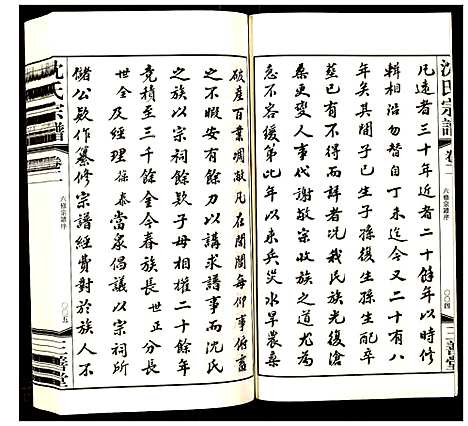 沈氏宗譜
卷二
六修宗譜序
〇〇四
三善堂
凡遠者三十年近者二十餘年以時修
輯相沿勿替自丁未迄今又二十有八
年矣其間子已生子孫復生孫生配卒
塟已有不可得而詳者況我民族光復滄
桑更變人事代謝敬宗收族之道尤為
急不容緩第此年以來兵災水旱農桑
破產百業凋敝凡在閭閻每例俯畜
之不暇安有餘力以講求譜事而沈氏
之族以宗祠餘欵子母相權二十餘年
竟積至三千餘金今春族長 世正 分長
世全及經理 保泰 當泉倡議以宗祠所
儲公欵作纂修宗譜經費對於族人不
沈氏宗譜
卷二
六修宗譜序
〇〇五
三善堂